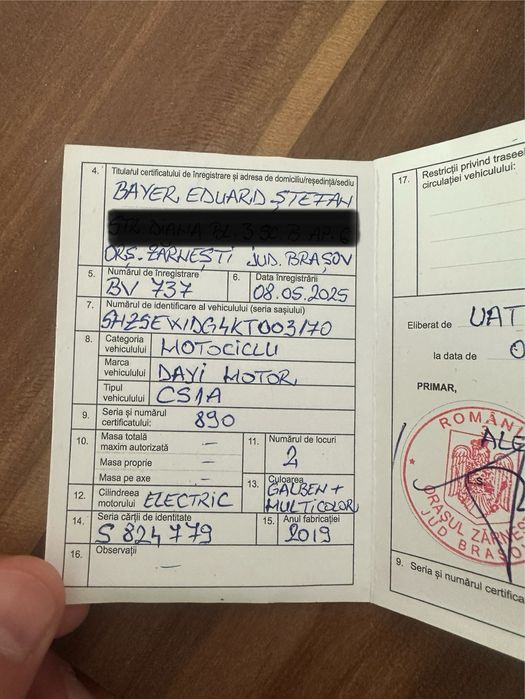 4. Titularul certificatului de înregistrare și adresa de domiciliu/reședință/sediu
BAYER EDUARD ȘTEFAN
ORȘ. ZĂRNEȘTI JUD. BRAȘOV
5. Numărul de înregistrare
BV 737
6. Data înregistrării
08.05.2025
7. Numărul de identificare al vehiculului (seria șasiului)
8. Categoria vehiculului MOTOCICLU
Marca vehiculului DAYI MOTOR
Tipul vehiculului CS1A
9. Seria și numărul certificatului: 890
10. Masa totală maxim autorizată –
Masa proprie –
Masa pe axe –
11. Numărul de locuri
2
12. Cilindreea motorului ELECTRIC
13. Culoarea
GALBEN +
MULTICOLOR
14. Seria cărții de identitate
S 824779
15. Anul fabricației
2019
16. Observații
–
17. Restricții privind
circulației vehiculului:
Eliberat de UAT
la data de
PRIMAR,
ROMÂNI
ORAȘUL ZĂRNE
JUD BRAȘO
9. Seria și numărul